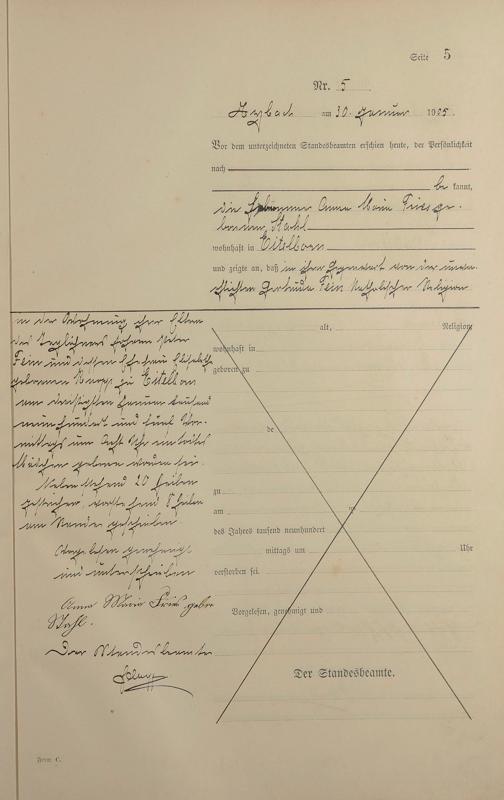 Seite 5
Nr. 5
Arzbach am 30. Januar 1905
Vor dem unterzeichneten Standesbeamten erschien heute, der Persönlichkeit
nach
be kannt,
die Hebamme Anna Maria Fries ge-
borene Stahl
wohnhaft in Eitelborn
und zeigte an, daß in ihrer Gegenwart von der unver-
ehelichten Gertrude Fein, katholischer Religion
in der Wohnung ihrer Eltern
des Taglöhners Johann Peter
Fein und dessen Ehefrau Elisabeth
geborenen zu Eitelborn
am dreißigsten Januar tausend
neunhundert und fünf Vor-
mittags um acht Uhr ein totes
Mädchen geboren worden sei.
Nebenstehend 20 Zeilen
gestrichen, vorstehend 8 Zeilen
am Rande geschrieben
Vorgelesen, genehmigt
und unterschrieben
Anna Maria Fries gebor
Stahl.
Der Standesbeamte
alt, Religion
wohnhaft in
geboren zu
de
zu
am
des Jahres tausend neunhundert
mittags um Uhr
verstorben sei.
Vorgelesen, genehmigt und
Der Standesbeamte.
Form C.